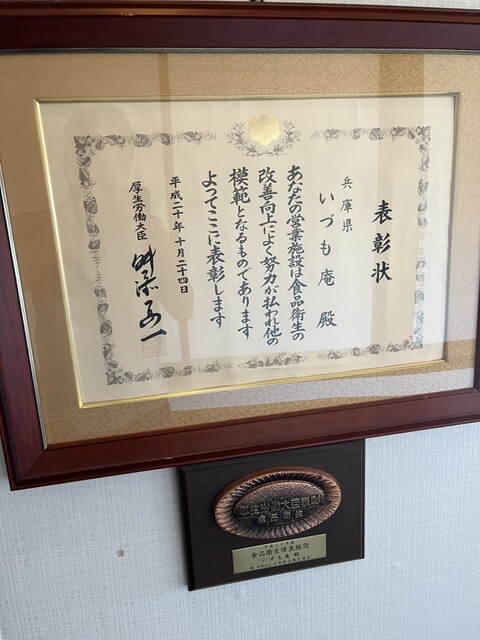 表彰状
兵庫県
いづも庵 殿
あなたの営業施設は食品衛生の
改善向上によく努力が払われ他の
模範となるものであります
よってここに表彰します
平成二十年十月二十四日
厚生労働大臣 舛添要一
厚生労働大臣表彰
食品衛生
食品衛生優良施設